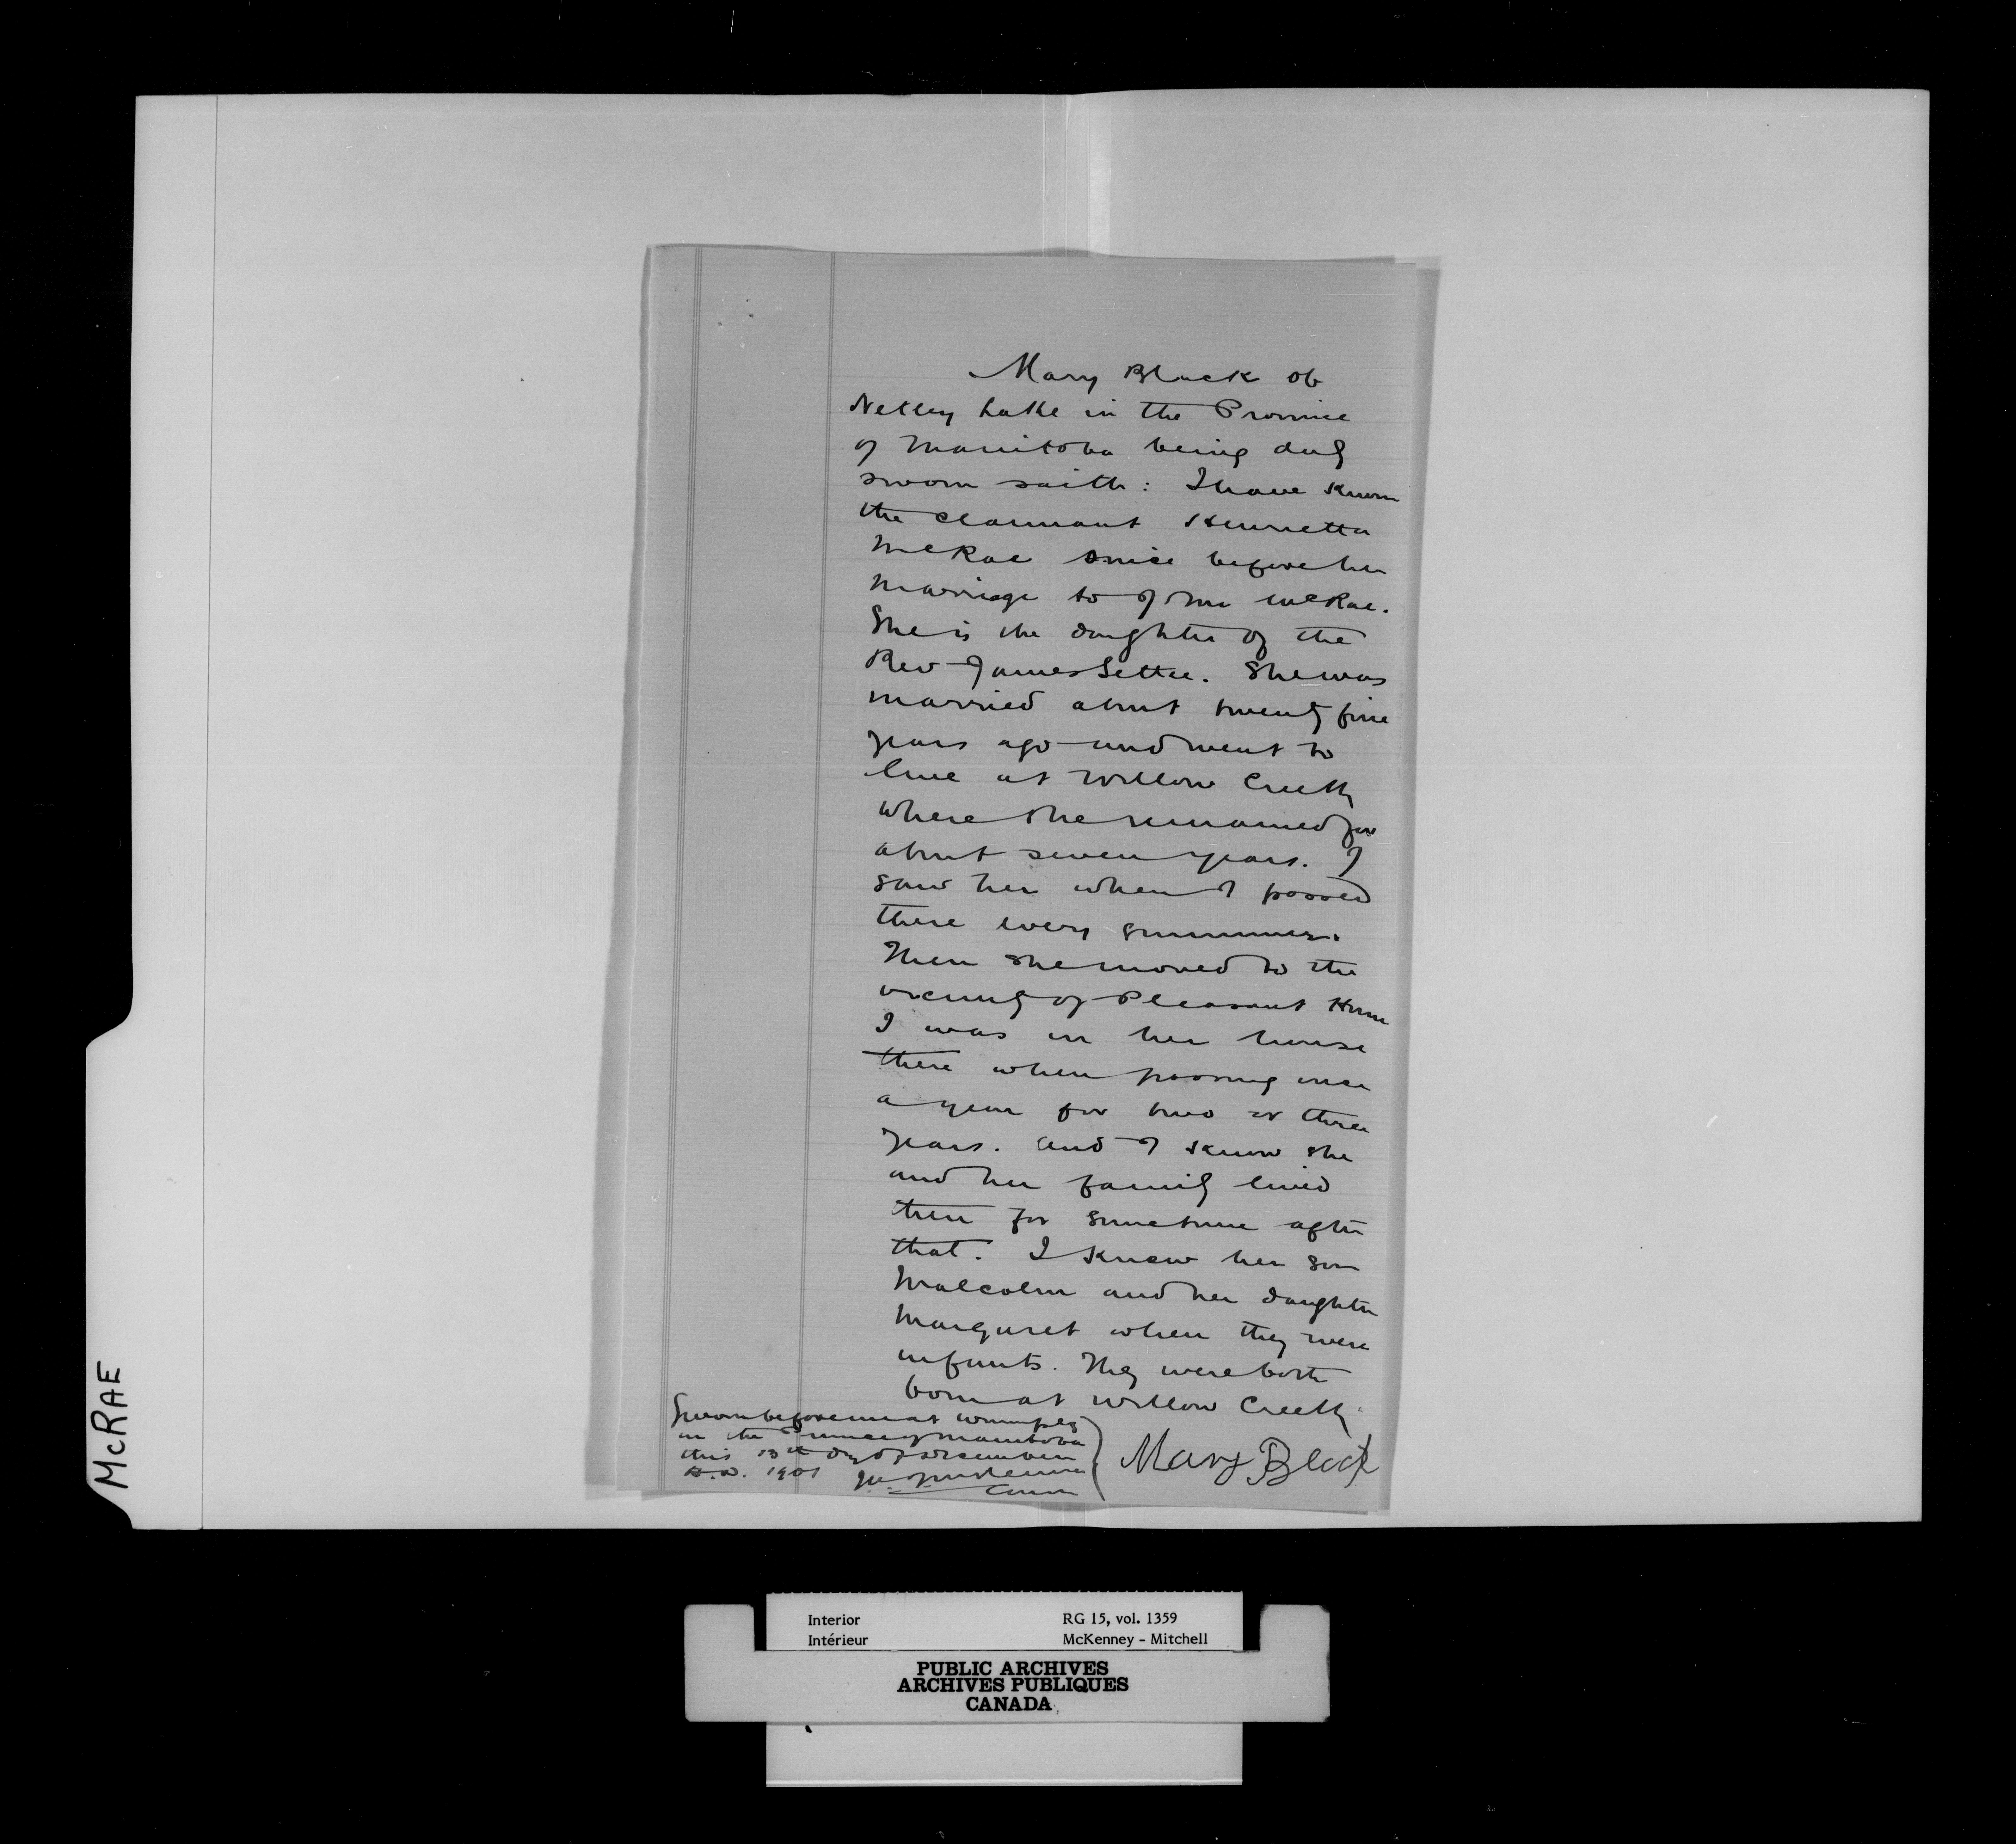 Mary Black of
Netley Lake in the Province
of Manitoba being duly
sworn saith: I have known
the claimant Henrietta
McRae since before her
marriage to John McRae.
She is the daughter of the
Rev James Settee. She was
married about twenty five
years ago and went to
live at Willow Creek
where she remained for
about seven years. I
saw her when I passed
there every summer.
Then she moved to the
vicinity of Pleasant Home
I was in her house
there when passing once
a year for two or three
years. and I know she
and her family lived
there for sometime after
that. I knew her son
Malcolm and her daughter
Margaret when they were
infants. They were both
born at Willow Creek.
Sworn before me at Winnipeg
in the Province of Manitoba
this 13th day of December
A.D. 1901
Comr
Mary Black
McRAE
Interior RG 15, vol. 1359
Intérieur McKenney - Mitchell
PUBLIC ARCHIVES
ARCHIVES PUBLIQUES
CANADA